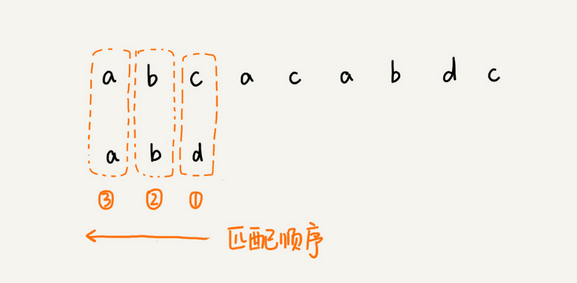 a b c a c a b d c
a b d
③ ② ①
匹配顺序